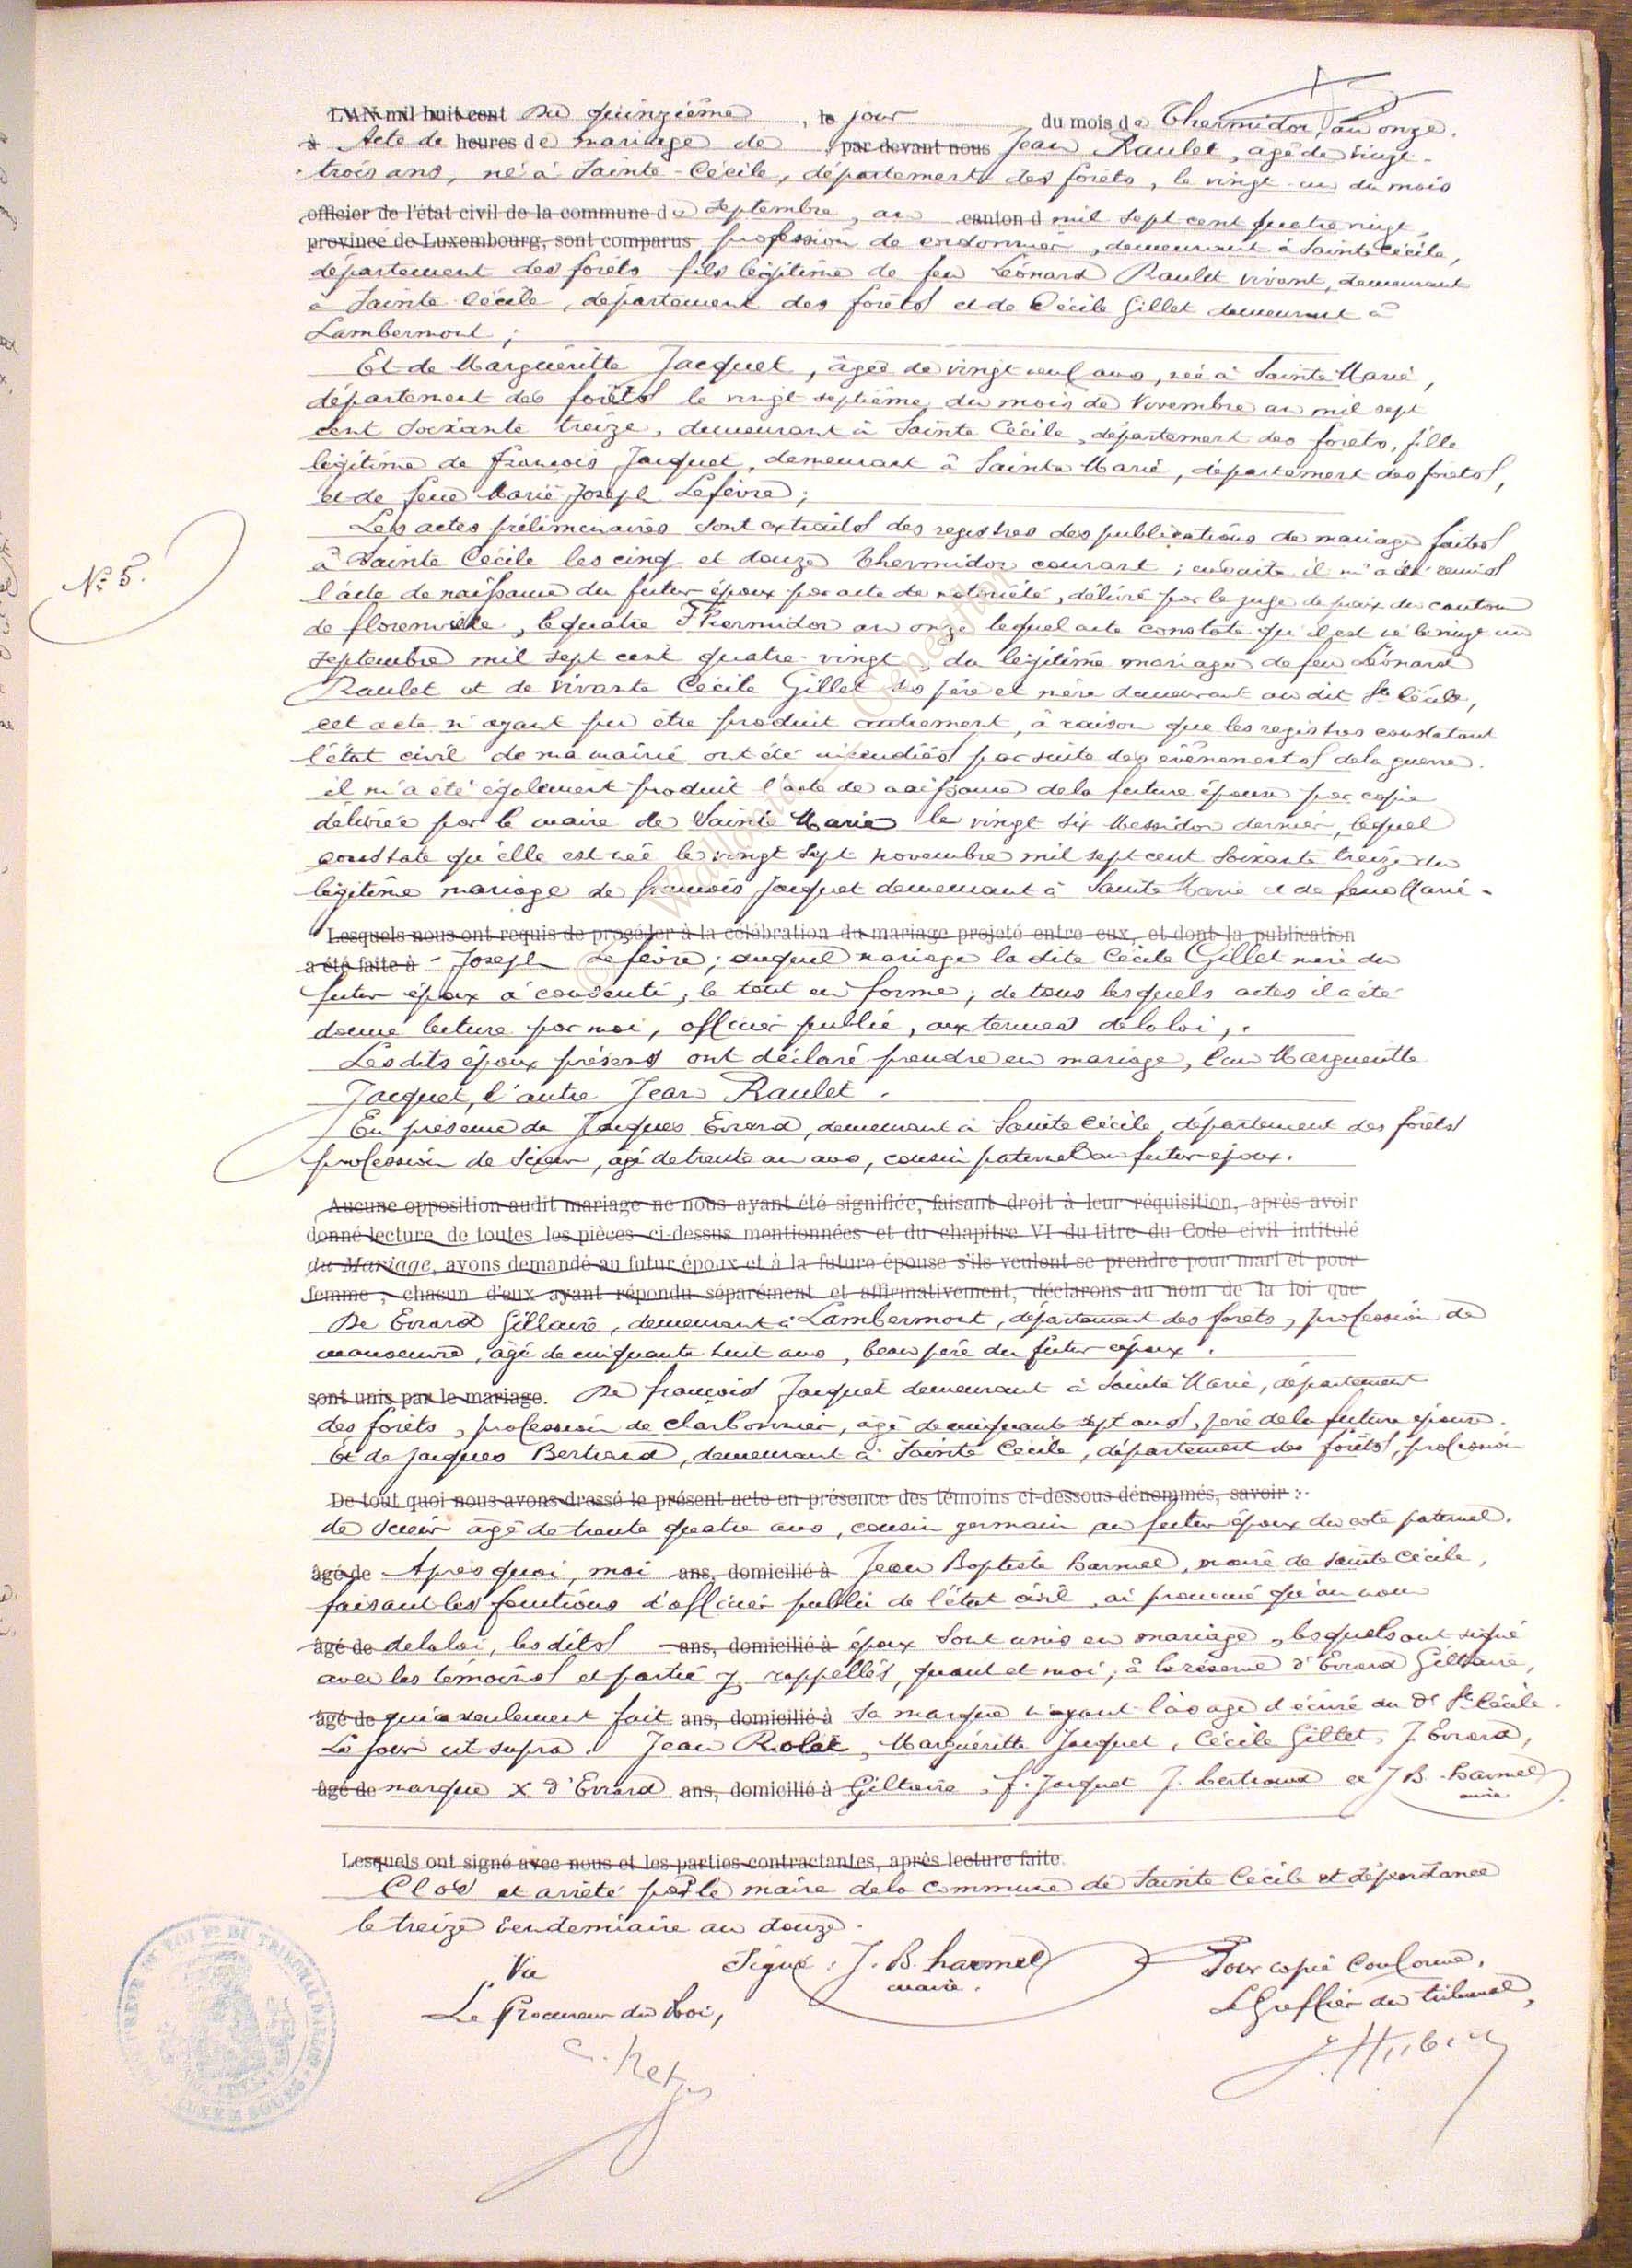 L'AN mil huit cent Du quinzième, le jour du mois de Thermidor, an onze.
à Acte de heures de mariage de par devant nous Jean Raulet, agé de vingt-
trois ans, né à Sainte-Cécile, département des forêts, le vingt un du mois
officier de l'état civil de la commune de Septembre, an canton d mil sept cent quatre vingt,
province de Luxembourg, sont comparus profession de cordonnier, demeurant à Sainte Cécile,
département des forêts fils légitime de feu Léonard Raulet vivant, demeurant
à Sainte Cécile, département des forêts et de Cécile Gillet demeurant à
Lambermont;
Et de Marguéritte Jacquet, âgée de vingt neuf ans, née à Sainte Marie,
département des forêts le vingt septième du mois de Novembre an mil sept
cent soixante treize, demeurant à Sainte Cécile, département des forêts, fille
légitime de françois Jacquet, demeurant à Sainte Marie, département des forêts,
et de feue Marie Joseph Lefèvre;
Les actes préliminaires sont extraits des registres des publications de mariage faites
N° 5.
à Sainte Cécile les cinq et douze Thermidor courant; ensuite il m'a été remis
l'acte de naissance du futur époux par acte de notoriété, délivré par le juge de paix du canton
de florenville, le quatre Thermidor an onze lequel acte constate qu'il est né le vingt un
septembre mil sept cent quatre-vingt, du légitime mariage de feu Léonard
Raulet et de vivante Cécile Gillet ses père et mère demeurant au dit Ste Cécile,
cet acte n'ayant pu être produit autrement, à raison que les registres constatant
l'état civil de ma mairie ont été incendiés par suite des évènements de la guerre.
il m'a été également produit l'acte de naissance de la future épouse par copie
délivrée par le maire de Sainte Marie le vingt six Messidor dernier, lequel
constate qu'elle est née le vingt sept novembre mil sept cent soixante treize du
légitime mariage de françois Jacquet demeurant à Sainte Marie et de feue Marie-
Lesquels nous ont requis de procéder à la célébration du mariage projeté entre eux, et dont la publication
a été faite à - Joseph Lefèvre; auquel mariage la dite Cécile Gillet mère du
futur époux a consenti, le tout en forme; de tous lesquels actes il a été
donné lecture par moi, officier public, aux termes de la loi,.
Les dits époux présens ont déclaré prendre en mariage, l'un Margueritte
Jacquet, l'autre Jean Raulet.
En présence de Jacques Evrard, demeurant à Sainte Cécile, département des forêts
profession de scieur, agé de trente un ans, cousin paternel au futur époux.
Aucune opposition audit mariage ne nous ayant été signifiée, faisant droit à leur réquisition, après avoir
donné lecture de toutes les pièces ci-dessus mentionnées et du chapitre VI du titre du Code civil intitulé
du Mariage, avons demandé au futur époux et à la future épouse s'ils veulent se prendre pour mari et pour
femme; chacun d'eux ayant répondu séparément et affirmativement, déclarons au nom de la loi que
De Evrard Gillaire, demeurant à Lambermont, département des forêts, profession de
manoeuvre, agé de cinquante huit ans, beau père du futur époux.
sont unis par le mariage. De françois Jacquet demeurant à Sainte Marie, département
des forêts, profession de charbonnier, agé de cinquante sept ans, père de la future épouse.
Et de Jacques Bertrand, demeurant à Sainte Cécile, département des forêts, profession
De tout quoi nous avons dressé le présent acte en présence des témoins ci-dessous dénommés, savoir :
de scieur agé de trente quatre ans, cousin germain au futur époux du coté paternel.
âgé de Après quoi, moi ans, domicilié à Jean Baptiste harmel, maire de Sainte Cécile,
faisant les fonctions d'officier public de l'état civil, ai prononcé qu'au nom
âgé de de la loi, les dits ans, domicilié à époux sont unis en mariage, lesquels ont signé
avec les témoins et partie y rappellés, quant et moi, à la réserve d'Evrard Gillaire,
âgé de qui a seulement fait ans, domicilié à sa marque n'ayant l'usage d'écrire au dt Ste Cécile.
Le jour ut supra. Jean Rolet, Marguéritte Jacquet, Cécile Gillet, J. Evrard,
âgé de marque X d'Evrard ans, domicilié à Giltaire, f. Jacquet J. bertrand et J B. harmel
maire
Lesquels ont signé avec nous et les parties contractantes, après lecture faite.
Clos et arrêté par le maire de la commune de Sainte Cécile et dépendance
le treize vendemiaire an douze.
Vu
Signé : J. B. harmel
maire.
Pour copie conforme,
Le Procureur du Roi,
Le Greffier du tribunal,
J. Hubert